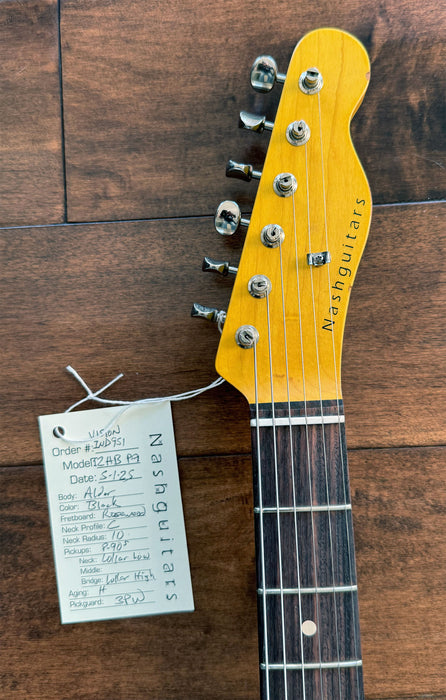 Nashguitars
VISION
Order #: IND951
Model: T2HB P9
Date: 5-1-25
Body: Alder
Color: Black
Fretboard: Rosewood
Neck Profile: C
Neck Radius: 10
Pickups: P-90s
Neck: Lollar Low
Middle:
Bridge: Lollar High
Aging: H
Pickguard: 3PW
Nashguitars